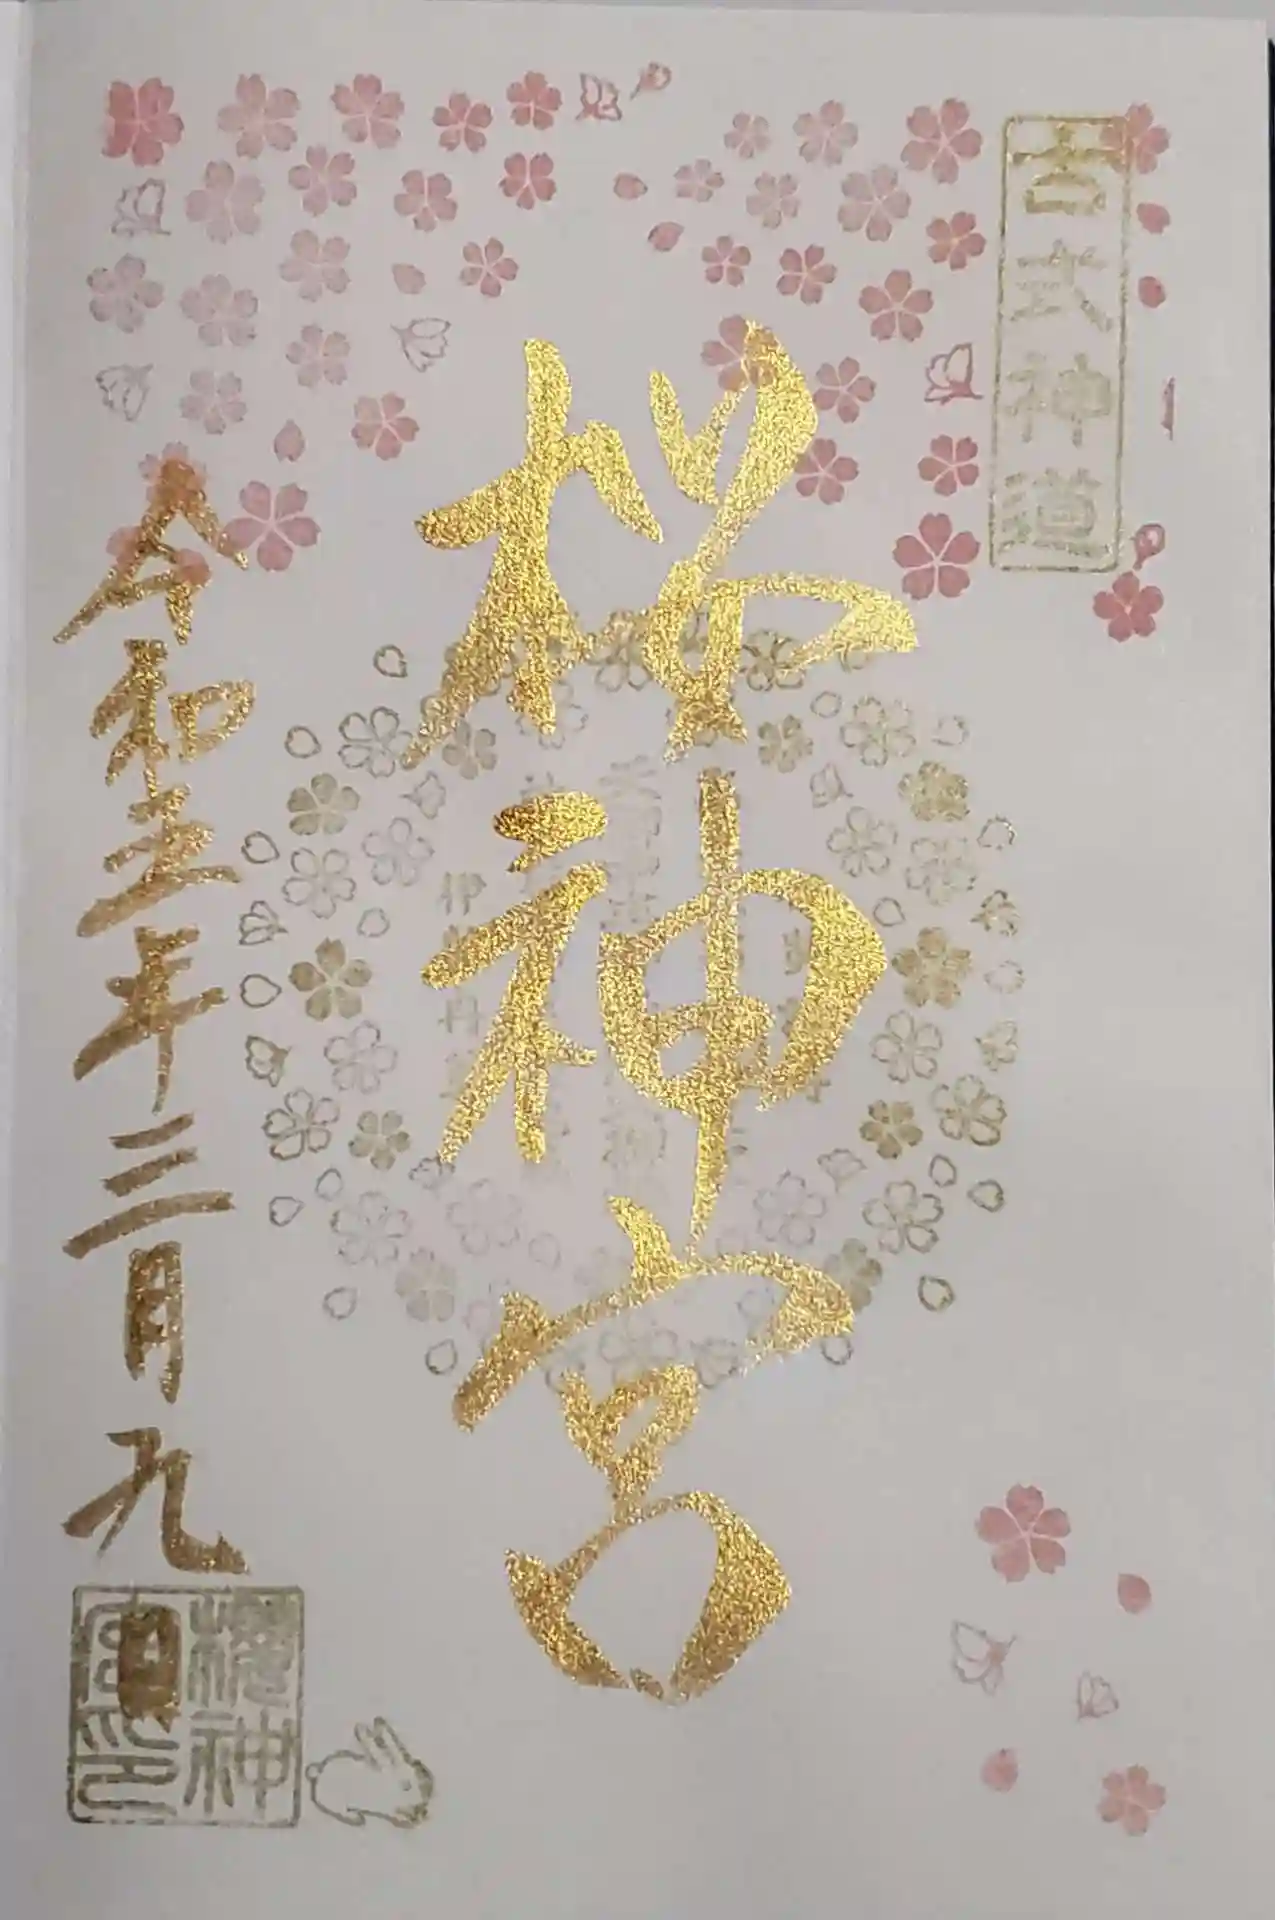 古式神道
桜神宮
令和五年三月九日
櫻神宮印